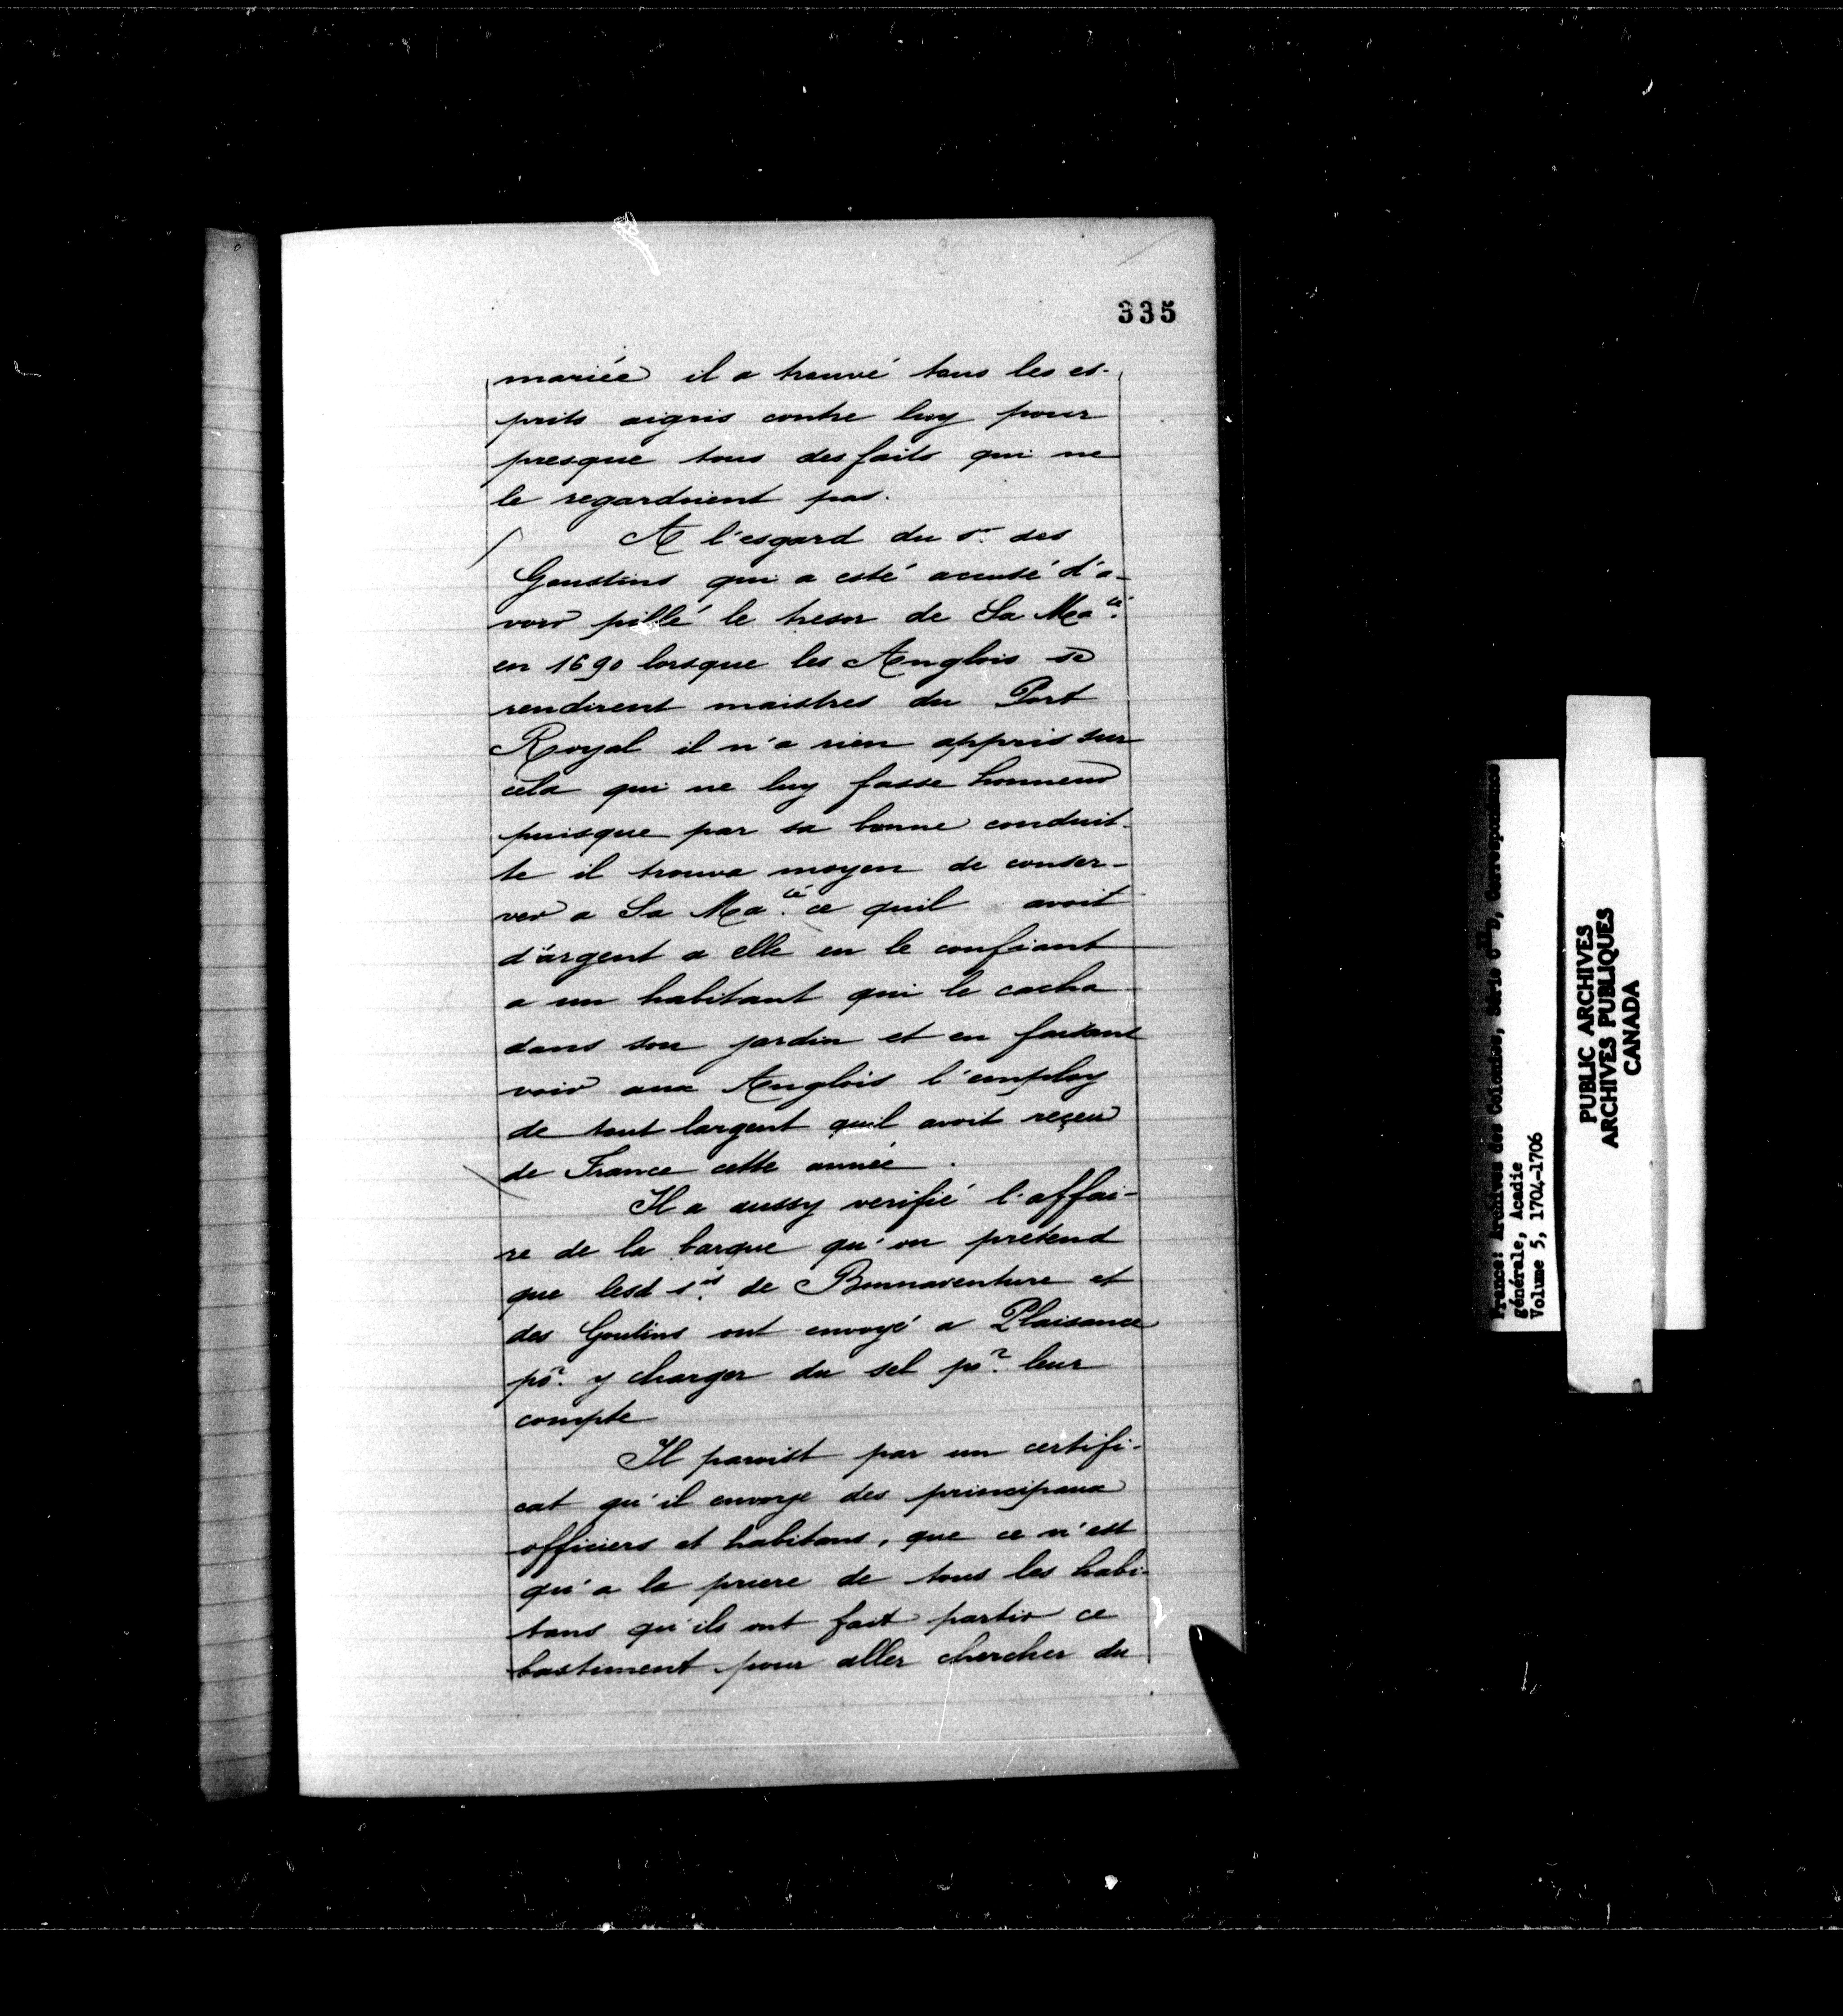 335
mariée il a trouvé tous les es-
prits aigris contre luy pour
presque tous des faits qui ne
le regardoient pas.
A l'esgard du sr. des
Goustins qui a esté accusé d'a-
voir pillé le tresor de Sa Maté.
en 1690 lorsque les Anglois se
rendirent maistres du Port
Royal il n'a rien appris sur
cela qui ne luy fasse honneur
puisque par sa bonne conduit-
te il trouva moyen de conser-
ver a Sa Maté. ce quil avoit
d'argent a elle en le confiant
a un habitant qui le cacha
dans son jardin et en faisant
voir aux Anglois l'employ
de tout largent quil avoit reçeu
de France cette année.
Il a aussy verifié l'affai-
re de la barque qu'on prétend
que lesd srs. de Bonnaventure et
des Goutins ont envoyé a Plaisance
por. y charger du sel por. leur
compte
Il paroist par un certifi-
cat qu'il envoye des principaux
officiers et habitans, que ce n'est
qu'a la priere de tous les habi-
tans qu'ils ont fait partir ce
bastiment pour aller chercher du
France: Archives des Colonies, Série C11D, Correspondance
générale, Acadie
Volume 5, 1704-1706
PUBLIC ARCHIVES
ARCHIVES PUBLIQUES
CANADA